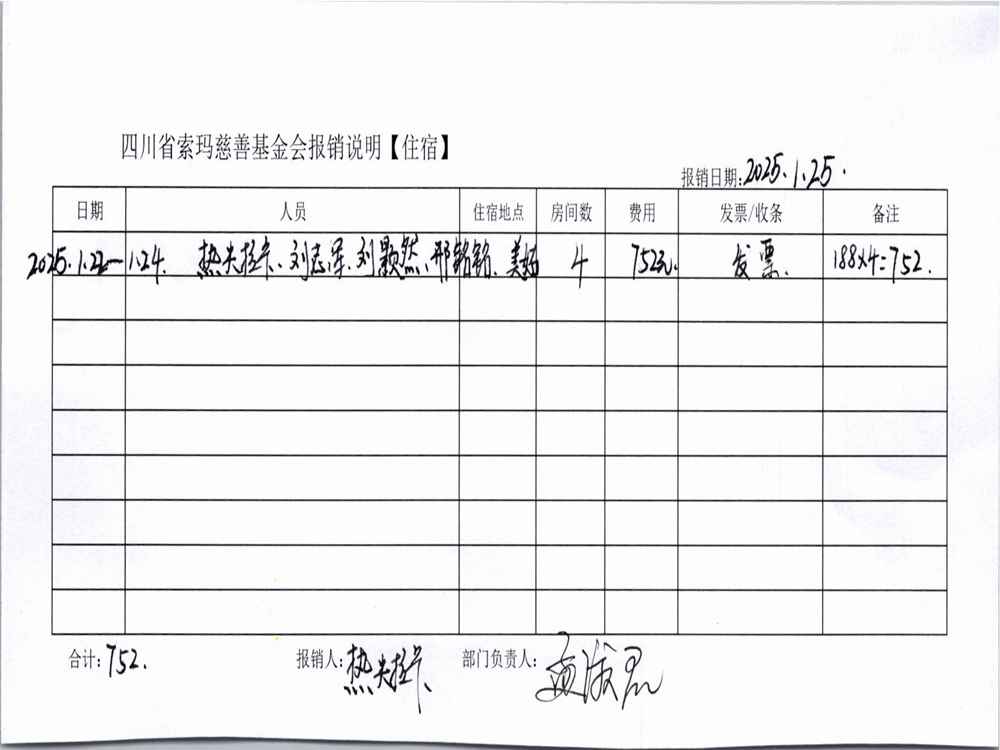 四川省索玛慈善基金会报销说明【住宿】
报销日期:2025.1.25.
日期 人员 住宿地点 房间数 费用 发票/收条 备注
2025.1.22—1.24. 热夫拉卡、刘志军、刘颢然、邢铭铭、美姑 4 752元. 发票. 188×4=752.
合计:752. 报销人:热夫拉卡 部门负责人: